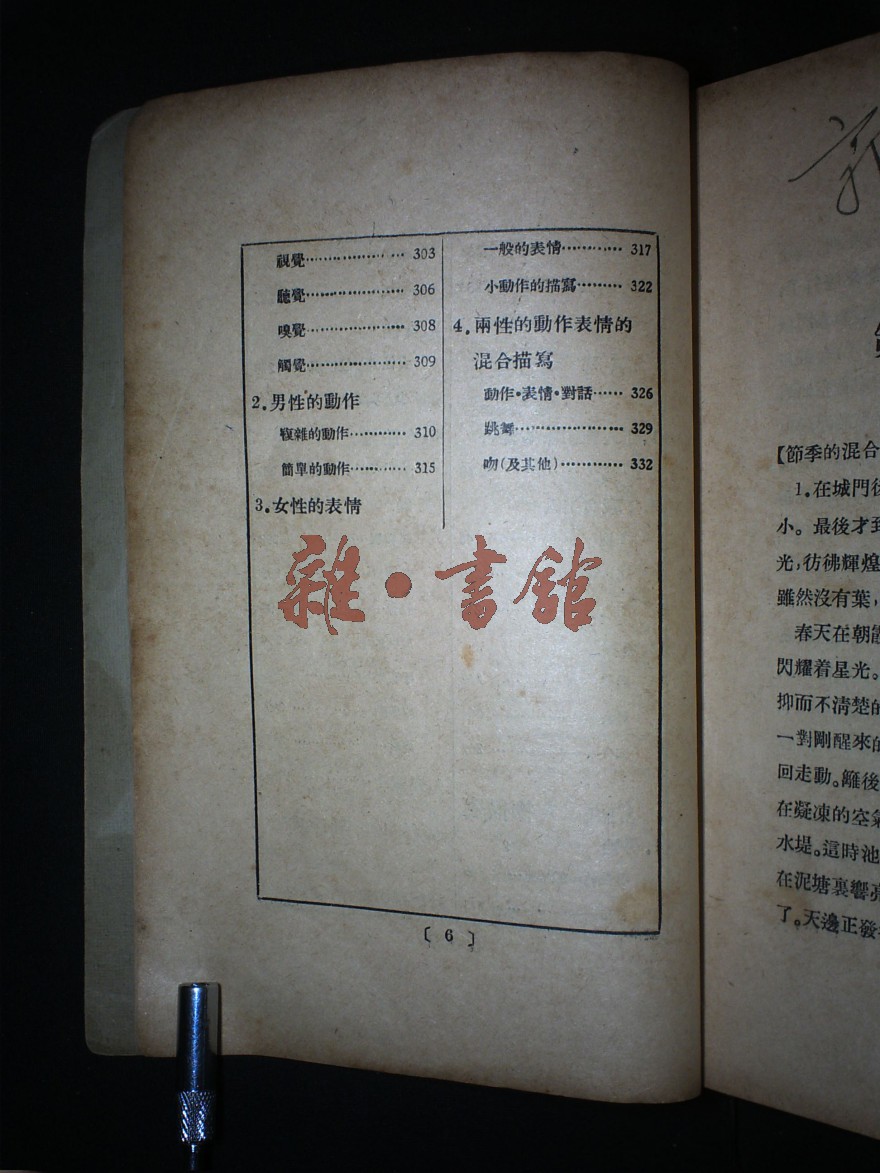 視覺……………… 303
聽覺……………… 306
嗅覺……………… 308
觸覺……………… 309
2.男性的動作
複雜的動作………… 310
簡單的動作………… 315
3.女性的表情
一般的表情………… 317
小動作的描寫……… 322
4.兩性的動作表情的
混合描寫
動作·表情·對話…… 326
跳舞……………… 329
吻(及其他)………… 332
雜·書館
〔 6 〕
【節季的混合
1.在城門
小。最後才
光,彷彿輝煌
雖然沒有葉,
春天在朝
閃耀着星光。
抑而不清楚的
一對剛醒來的
回走動。籬後
在凝凍的空氣
水堤。這時池
在泥塘裏響
了。天邊正發